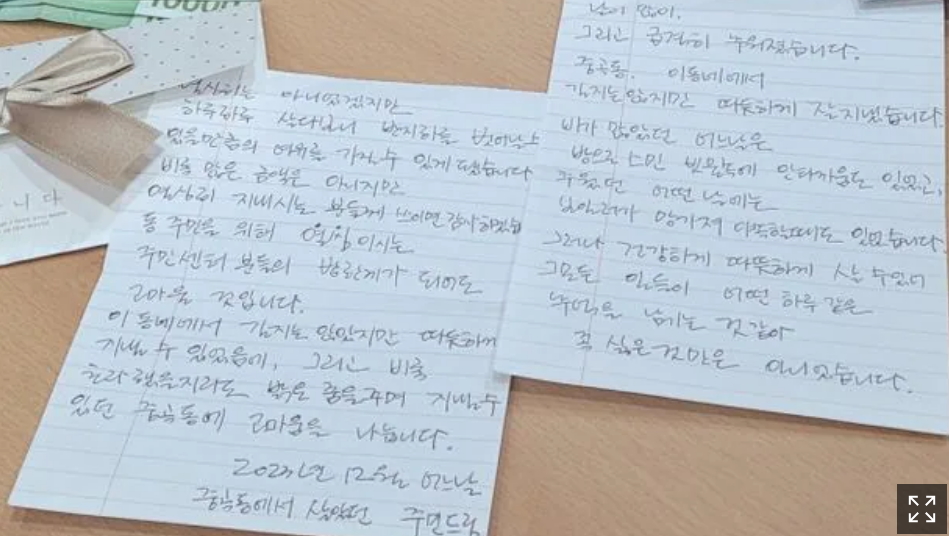 10000
니다
아니었겠지만
하루하루 살다보니 반지하를 벗어날 수
있을만큼의 여유를 가질 수 있게 됐습니다
비록 많은 금액은 아니지만
열심히 지내시는 분들께 쓰이면 감사하겠습
동 주민을 위해 이시는
주민센터 분들의 밥한끼가 되어도
고마울 것입니다.
이 동네에서 길지는 않았지만 따뜻하게
지낼 수 있었음에, 그리고 비록
초라했을지라도 밝은 꿈을 꾸며 지낼 수
있던 중곡동에 고마움을 나눕니다.
2023년 12월 어느날
중곡동에서 살았던 주민드림
눈이 많이.
그리고 급격히 추워졌습니다.
중곡동. 이동네에서
길지는 않지만 따뜻하게 잘 지냈습니다.
비가 많았던 어느날은
방으로 스민 빗물들에 안타까움도 있었고,
추웠던 어떤 날에는
보일러가 망가져 아득할때도 있었습니다.
그러나 건강하게 따뜻하게 살 수 있어
그 모든 일들이 어떤 하루 같은
추억을 남기는 것 같아
꼭 싫은 것만은 아니었습니다.